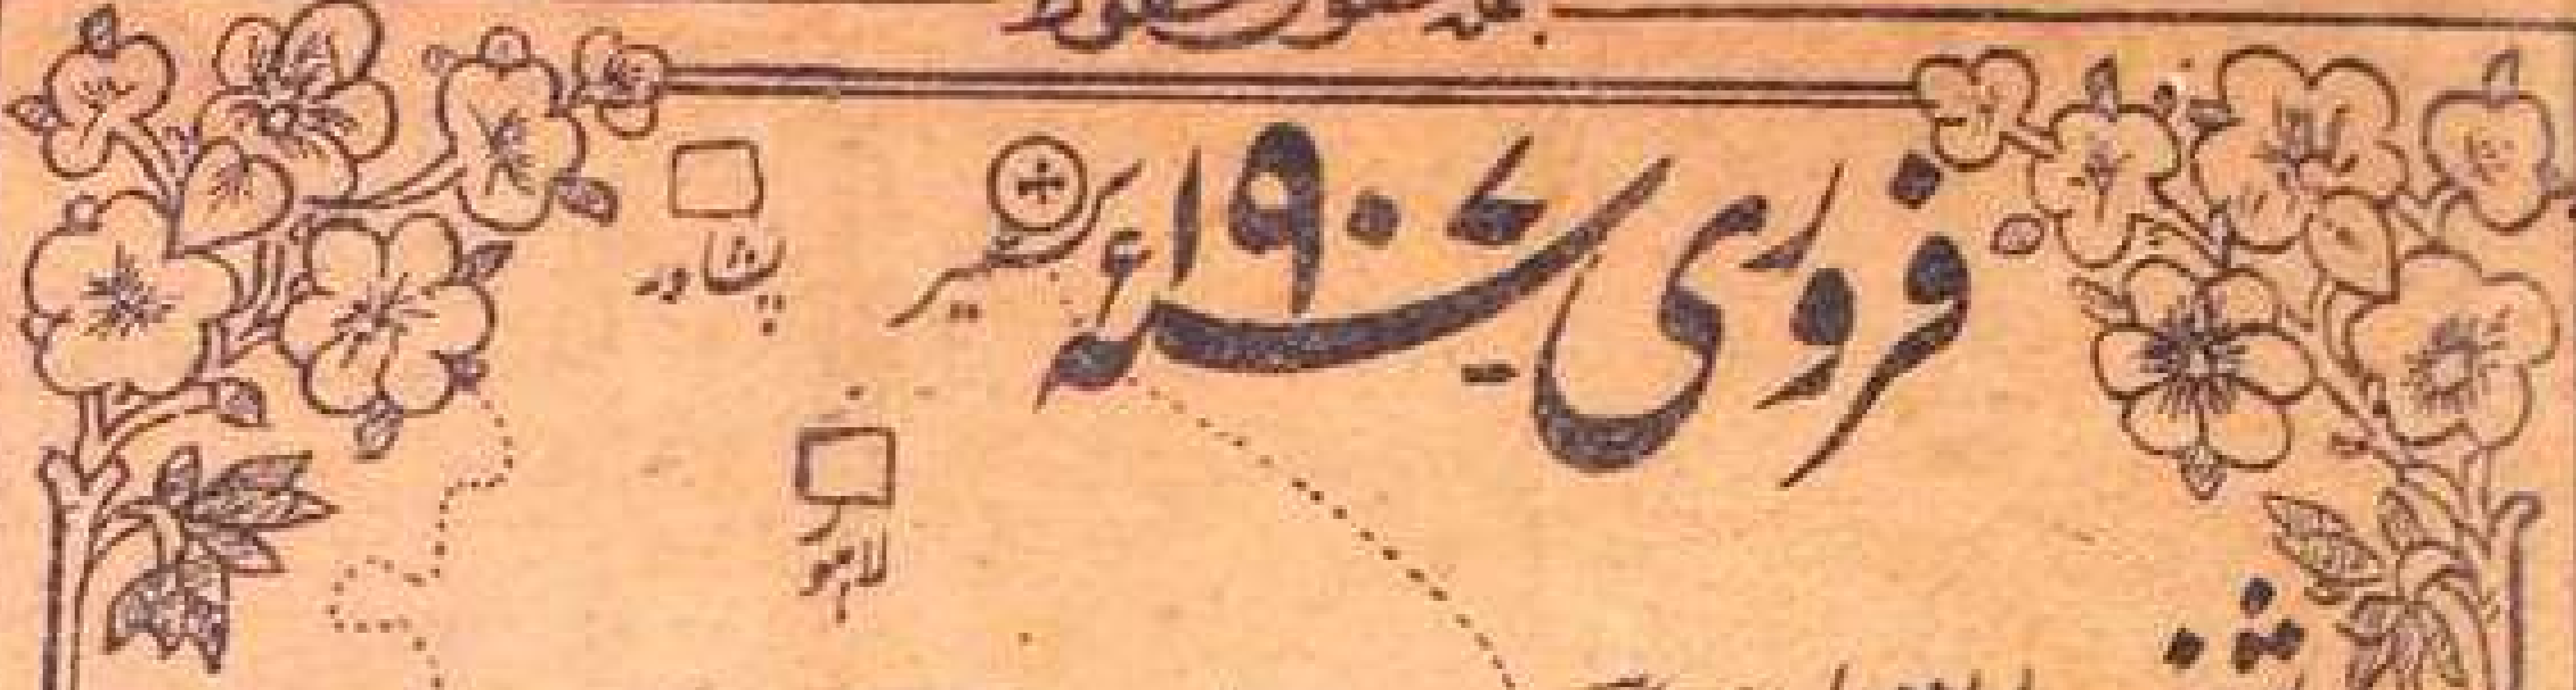 فروری سنہ ۱۹۰۷ء
کشمیر
پشاور
لاہور